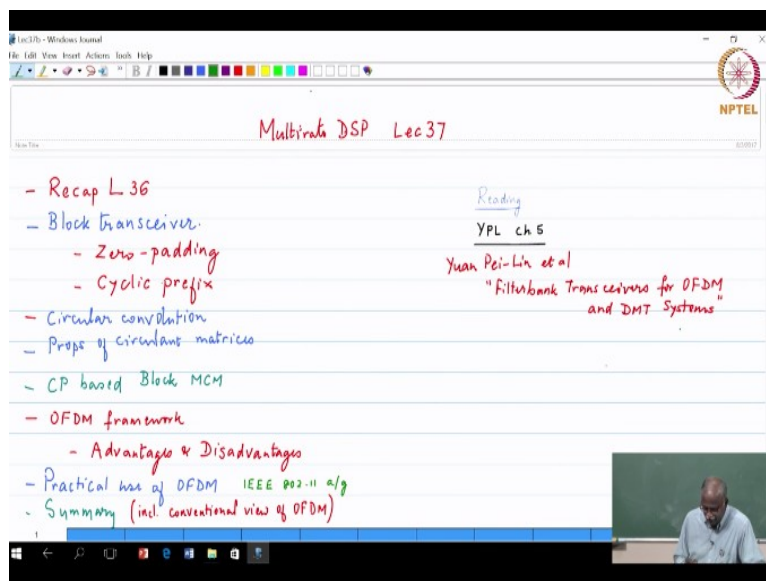 Lec37b - Windows Journal
File Edit View Insert Actions Tools Help
NPTEL
Multirate DSP Lec 37
Note Title
- Recap L 36
- Block transceiver.
- Zero-padding
- Cyclic prefix
- Circular convolution
- Props of circulant matrices
- CP based Block MCM
- OFDM framework
- Advantages & Disadvantages
- Practical use of OFDM IEEE 802.11 a/g
- Summary (incl. conventional view of OFDM)
Reading
YPL ch 5
Yuan Pei-Lin et al
"Filterbank Transceivers for OFDM
and DMT Systems"
1